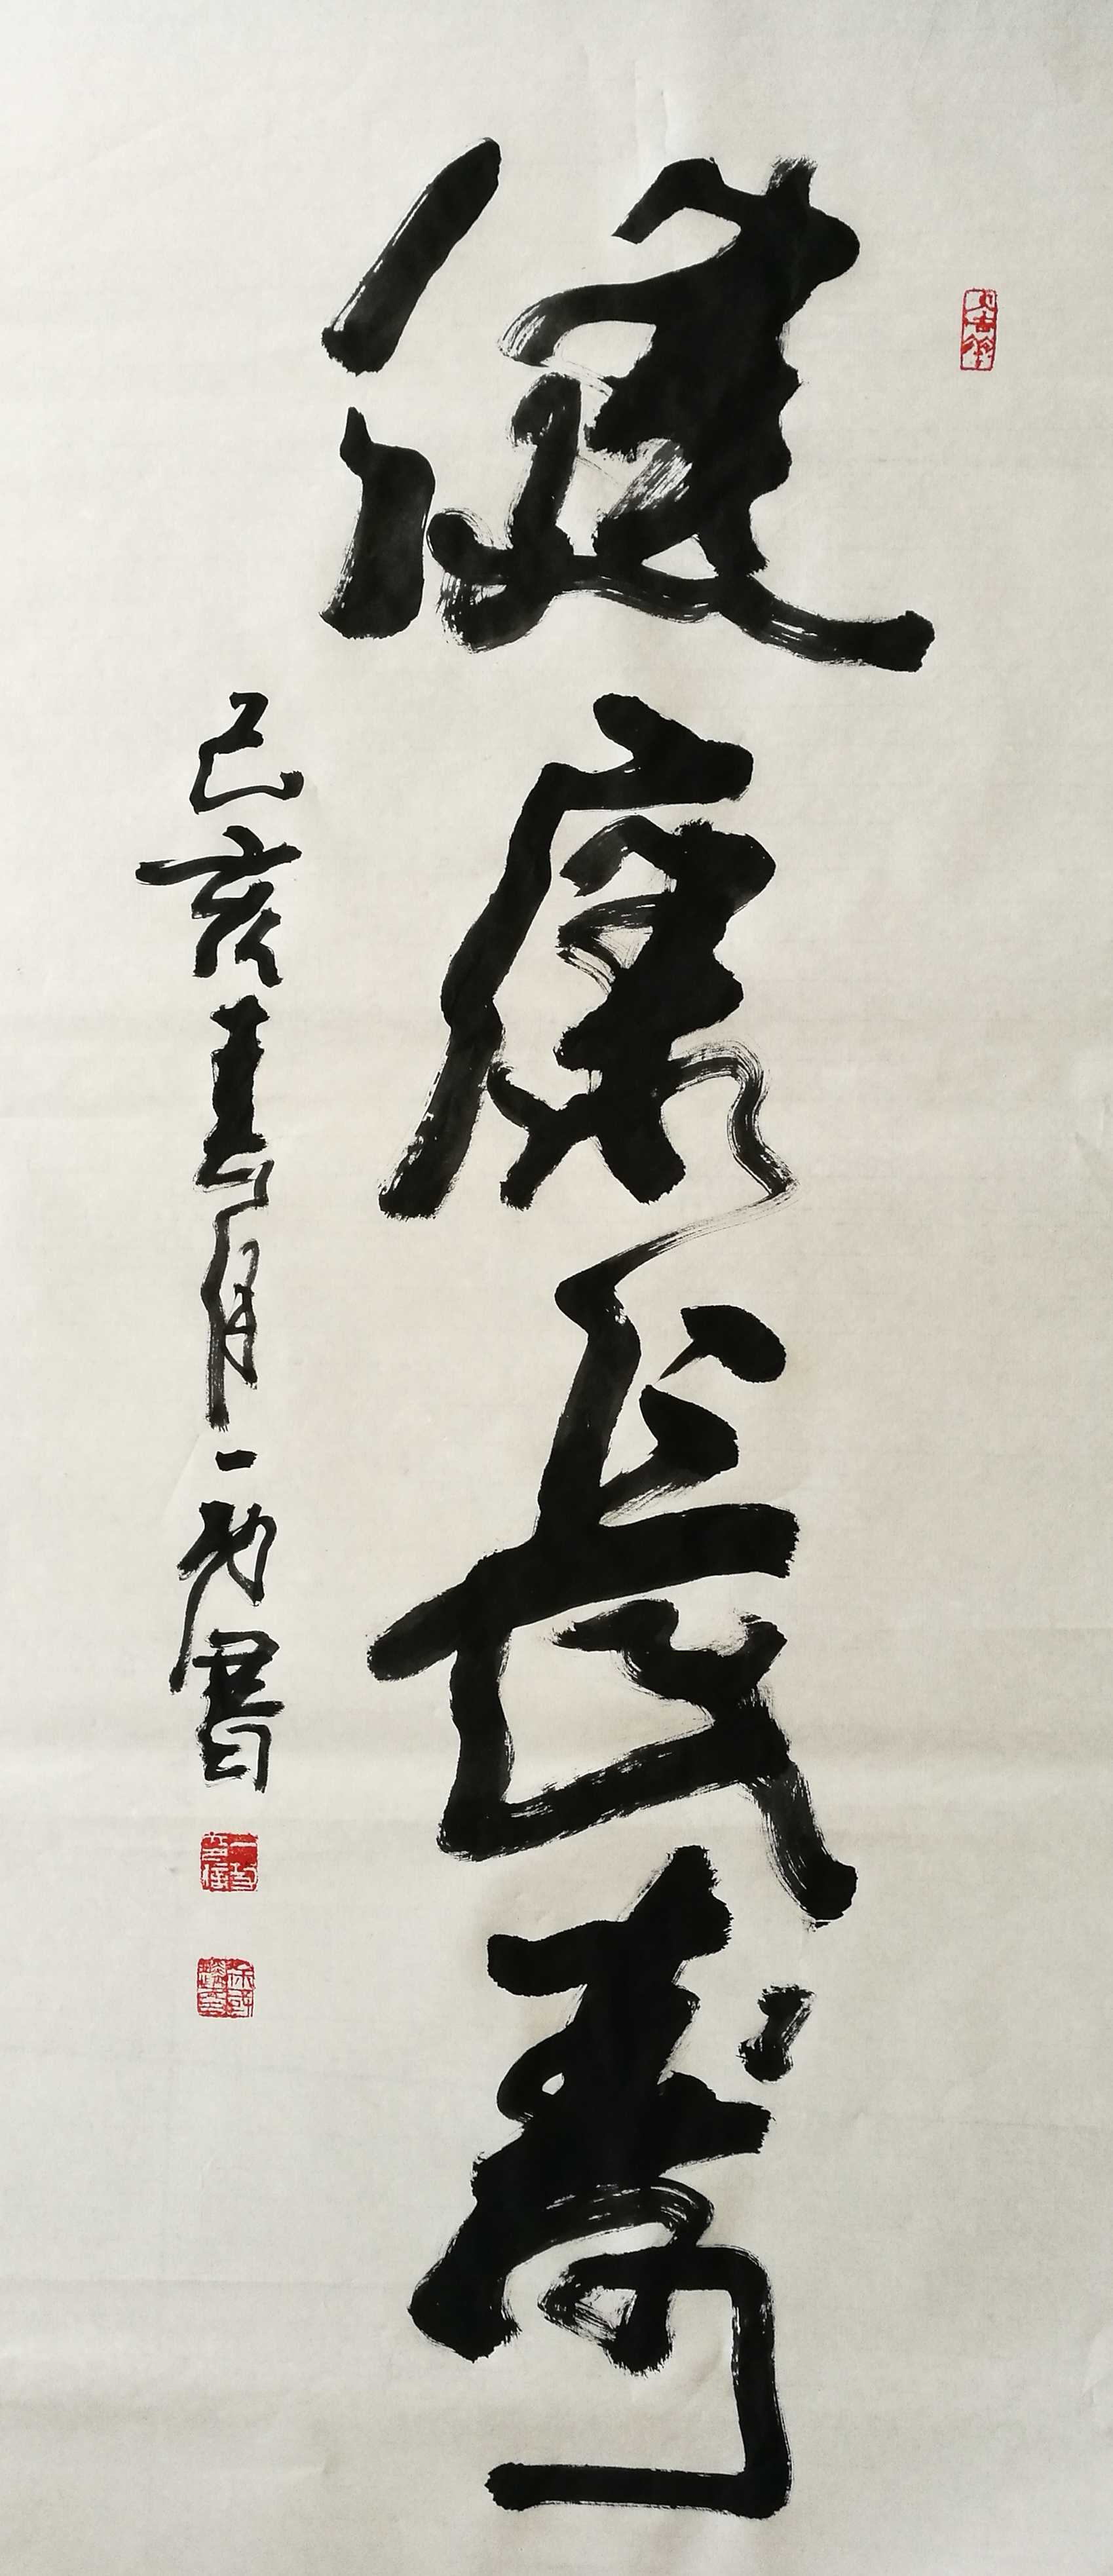 健康長壽
己亥春月一為書